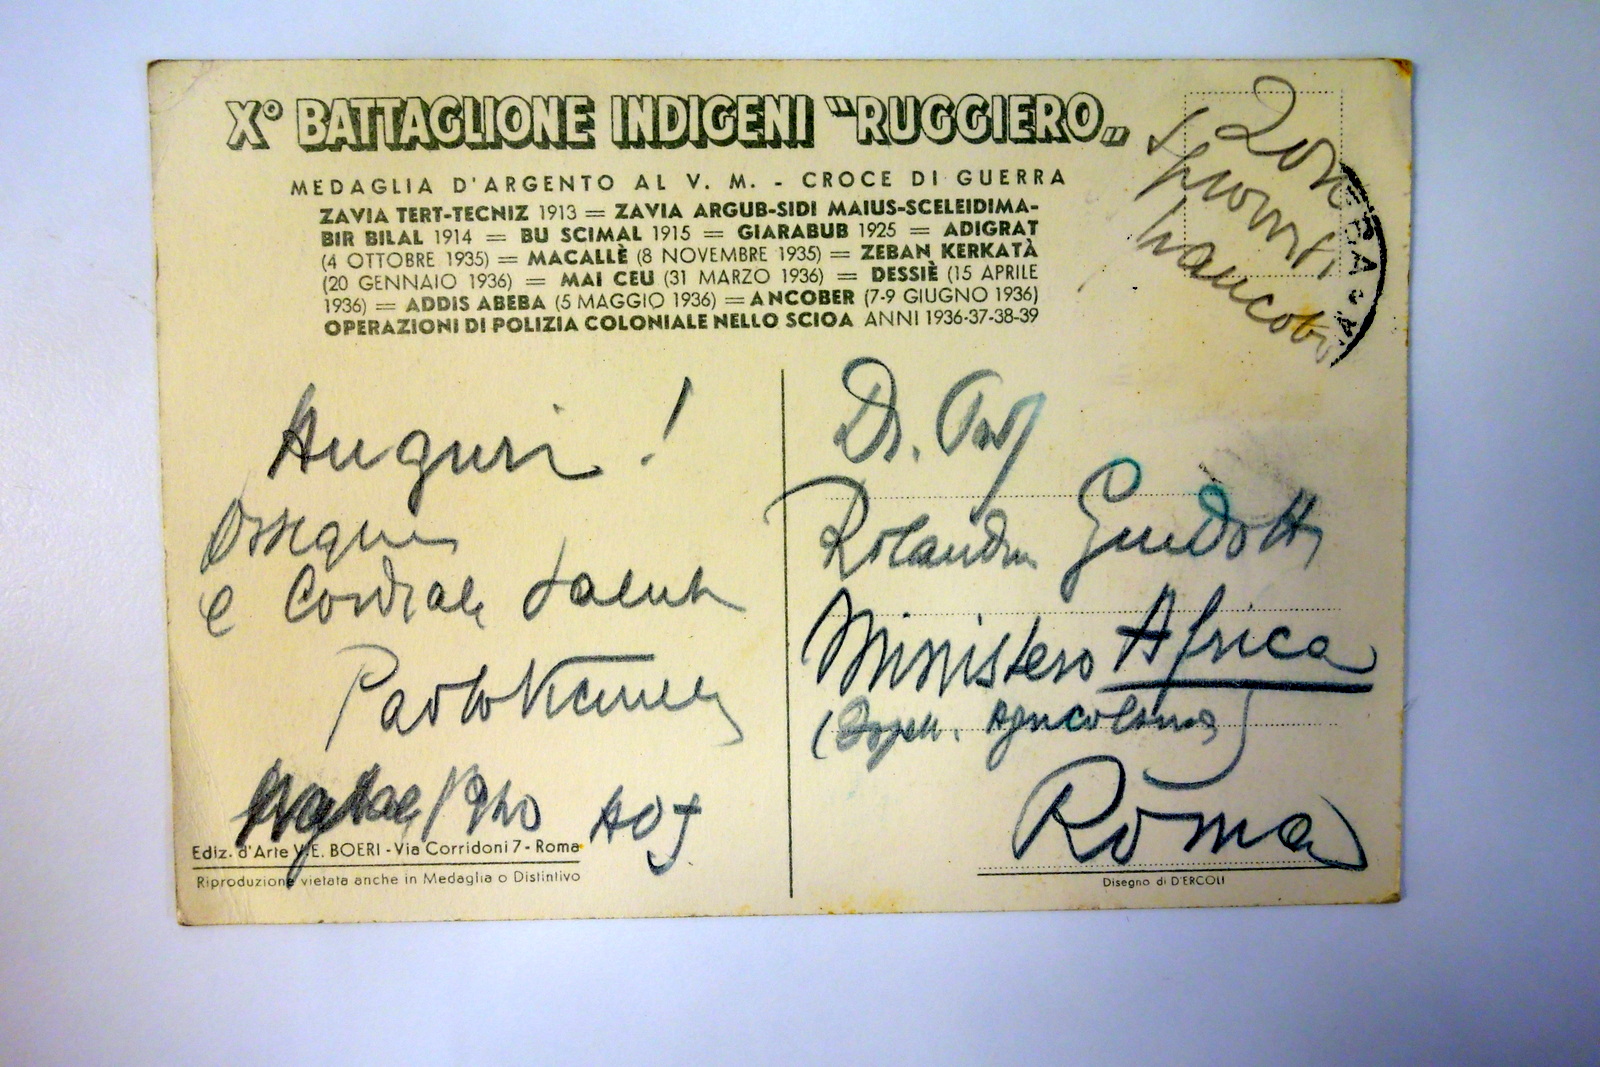 X° BATTAGLIONE INDIGENI "RUGGIERO„
MEDAGLIA D'ARGENTO AL V. M. - CROCE DI GUERRA
ZAVIA TERT-TECNIZ 1913 = ZAVIA ARGUB-SIDI MAIUS-SCELEIDIMA-
BIR BILAL 1914 = BU SCIMAL 1915 = GIARABUB 1925 = ADIGRAT
(4 OTTOBRE 1935) = MACALLÈ (8 NOVEMBRE 1935) = ZEBAN KERKATÀ
(20 GENNAIO 1936) = MAI CEU (31 MARZO 1936) = DESSIÈ (15 APRILE
1936) = ADDIS ABEBA (5 MAGGIO 1936) = ANCOBER (7-9 GIUGNO 1936)
OPERAZIONI DI POLIZIA COLONIALE NELLO SCIOA ANNI 1936-37-38-39
Zona
Sprovvista
francobolli
Auguri!
Ossequi
e Cordiali Saluti
Paolo
1940 AOI
Ediz. d'Arte V.E. BOERI - Via Corridoni 7 - Roma
Riproduzione vietata anche in Medaglia o Distintivo
Dr. Prof
Rolando Guidotti
Ministero Africa
Roma
Disegno di D'ERCOLI